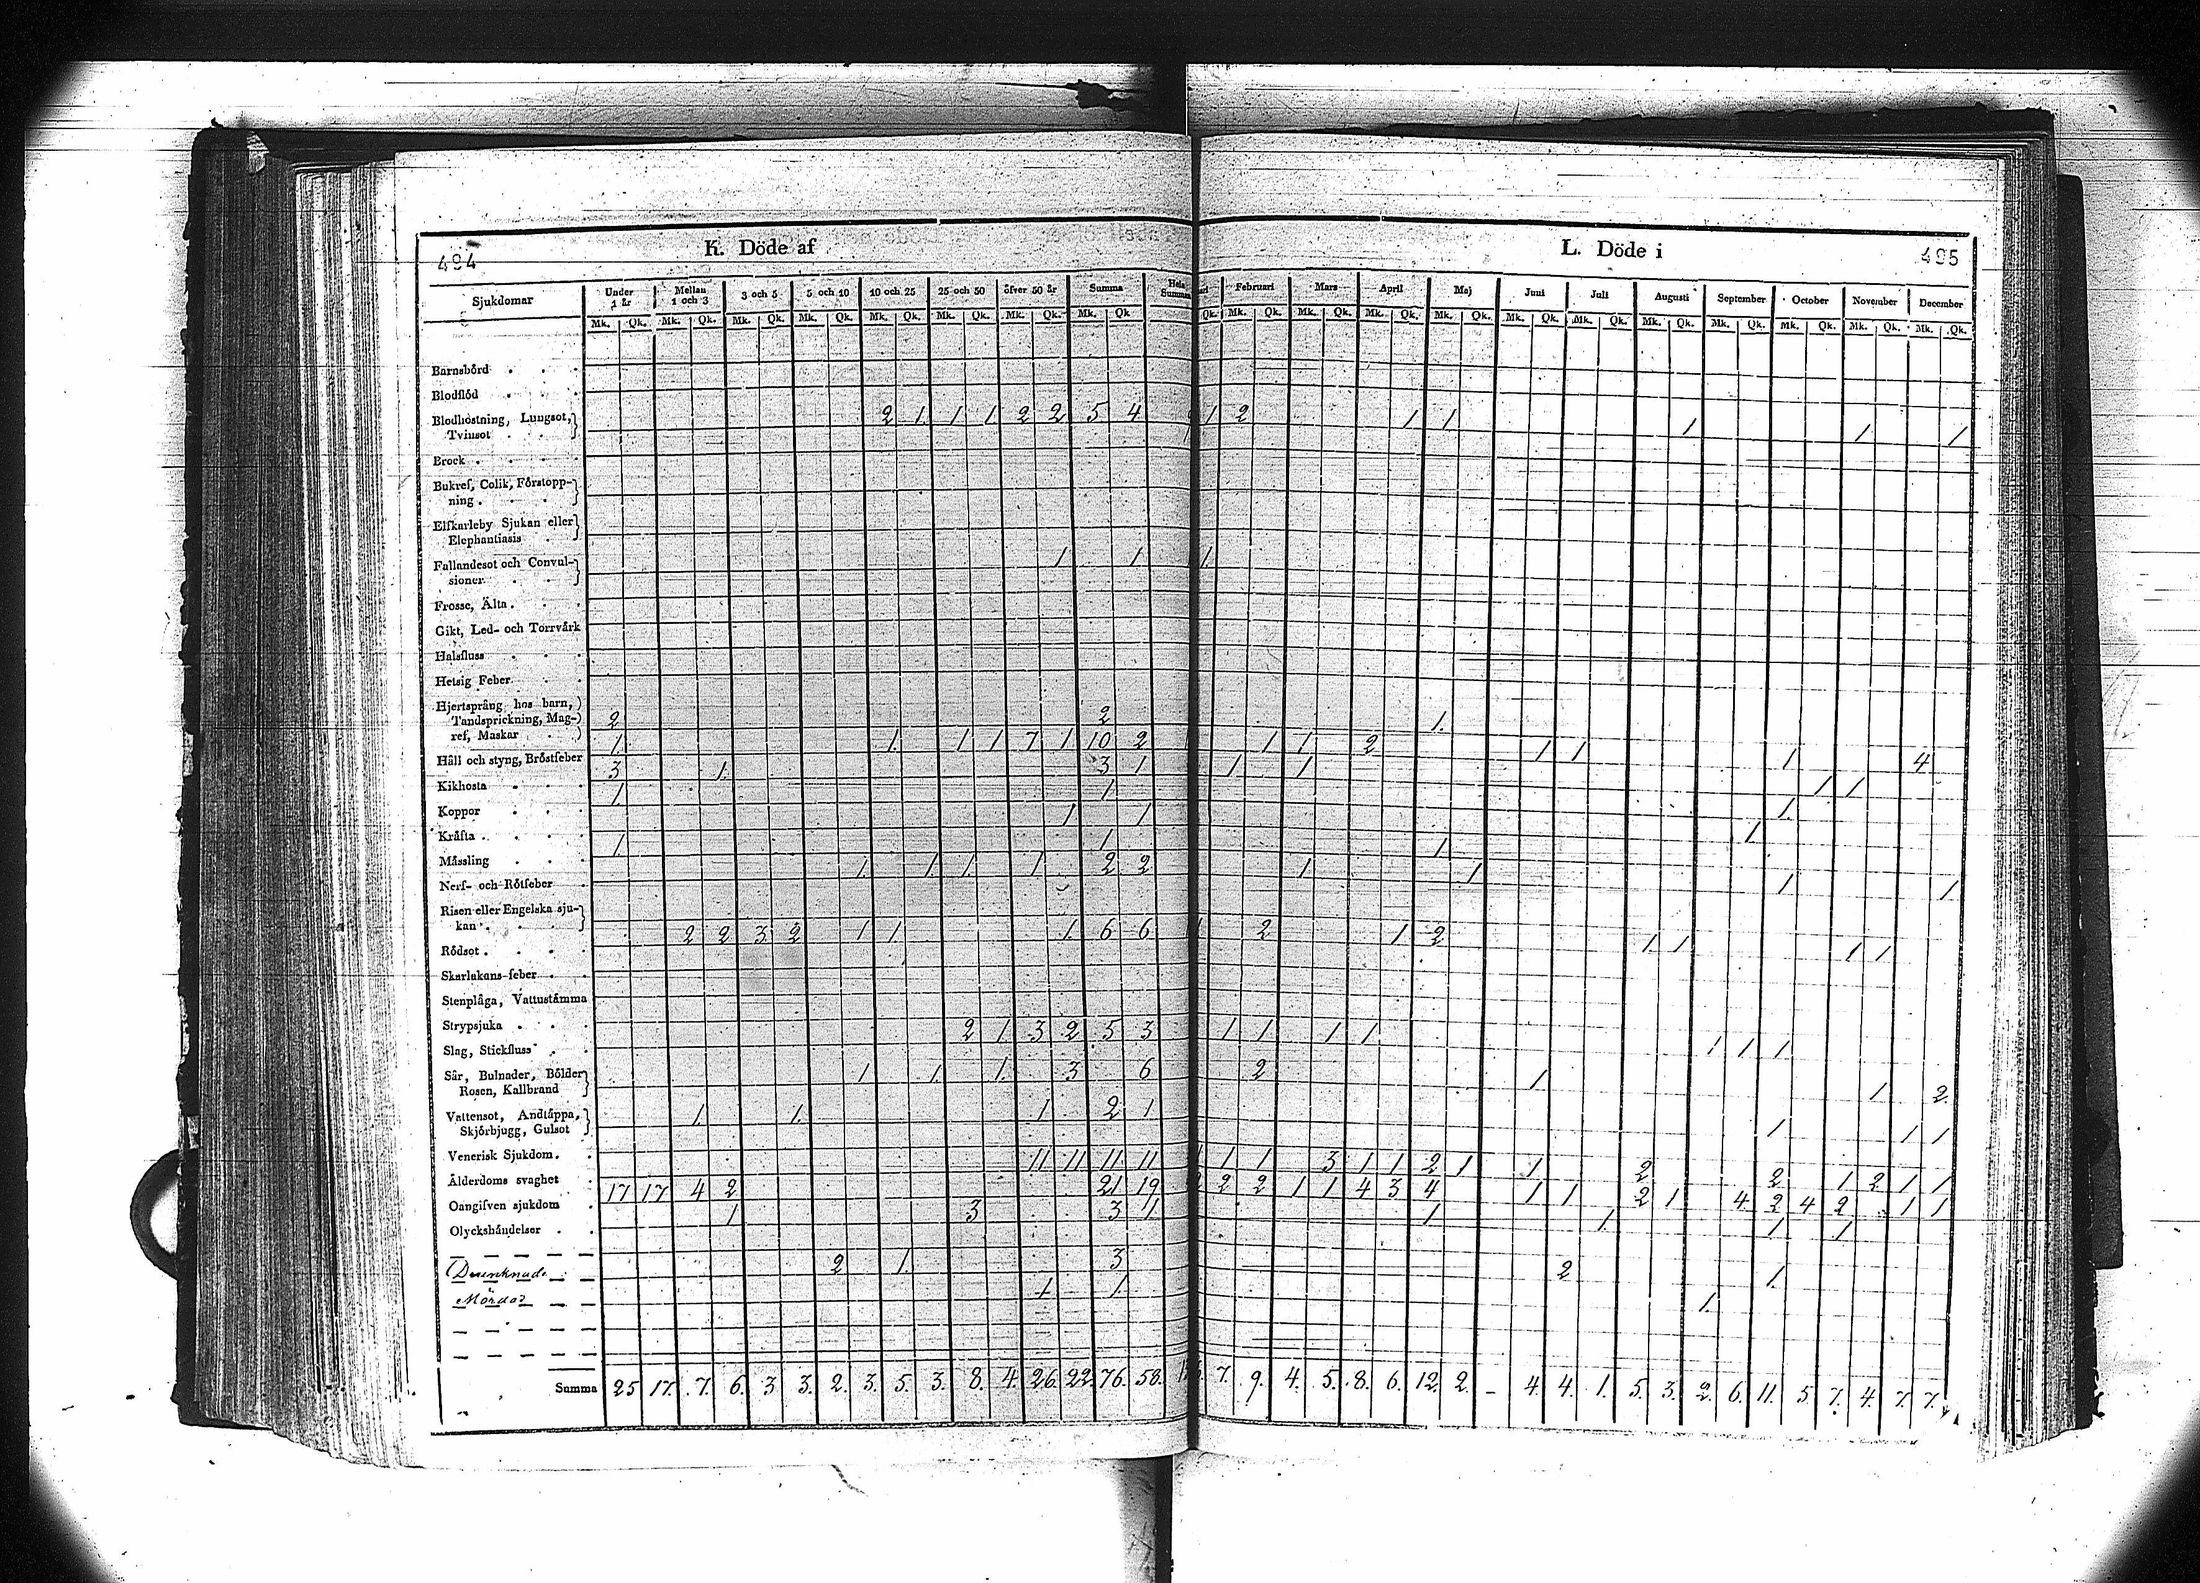 494 K. Döde af L. Döde i 495
Sjukdomar Under 1 år Mellan 1 och 3 3 och 5 5 och 10 10 och 25 25 och 50 öfver 50 år Summa Hela Summan Februari Mars April Maj Juni Juli Augusti September October November December
Mk. Qk. Mk. Qk. Mk. Qk. Mk. Qk. Mk. Qk. Mk. Qk. Mk. Qk. Mk. Qk Qk. Mk. Qk. Mk. Qk. Mk. Qk. Mk. Qk. Mk. Qk. Mk. Qk. Mk. Qk. Mk. Qk. Mk. Qk. Mk. Qk. Mk. Qk.
Barnsbörd
Blodflöd
Blodhostning, Lungsot,
Tvinsot 2 1 1 1 2 2 5 4 1 2 1 1 1 1 1
Brock
Bukref, Colik, Förstopp-
ning
Elfkarleby Sjukan eller
Elephantiasis
Fallandesot och Convul-
sioner 1 1 1
Frosse, Älta
Gikt, Led- och Torrvärk
Halsfluss
Hetsig Feber
Hjertsprång hos barn,
Tandsprickning, Mag-
ref, Maskar 2 2 1
Håll och styng, Bröstfeber 1 1 1 1 7 1 10 2 1 1 2 1 1 1 4
Kikhosta 3 1 3 1 1 1 1 1
Koppor 1 1 1
Kräfta 1 1 1
Mässling 1 1 1
Nerf- och Rötfeber 1 1 1 1 2 2 1 1 1 1
Risen eller Engelska sju-
kan
Rödsot 2 2 3 2 1 1 1 6 6 1 2 1 2 1 1 1 1
Skarlakans-feber
Stenplåga, Vattustämma
Strypsjuka
Slag, Stickfluss 2 1 3 2 5 3 1 1 1 1 1 1 1
Sår, Bulnader, Bölder
Rosen, Kallbrand 1 1 1 3 6 2 1 1 2
Vattensot, Andtäppa,
Skjörbjugg, Gulsot 1 1 1 2 1 1 1 1
Venerisk Sjukdom
Ålderdoms svaghet 11 11 11 11 1 1 1 3 1 1 2 1 1 2 2 1 2 1 1
Oangifven sjukdom 17 17 4 2 21 19 2 2 1 1 4 3 4 1 1 2 1 4 2 4 2 1 1
Olyckshändelser 1 3 3 1 1 1 1 1
Drunknade 2 1 3 2 1
Mördad 1 1 1
Summa 25 17. 7. 6. 3 3. 2. 3. 5. 3. 8. 4. 26. 22. 76. 58. 7. 9. 4. 5. 8. 6. 12. 2. - 4. 4. 1. 5. 3. 2. 6. 11. 5. 7. 4. 7. 7.